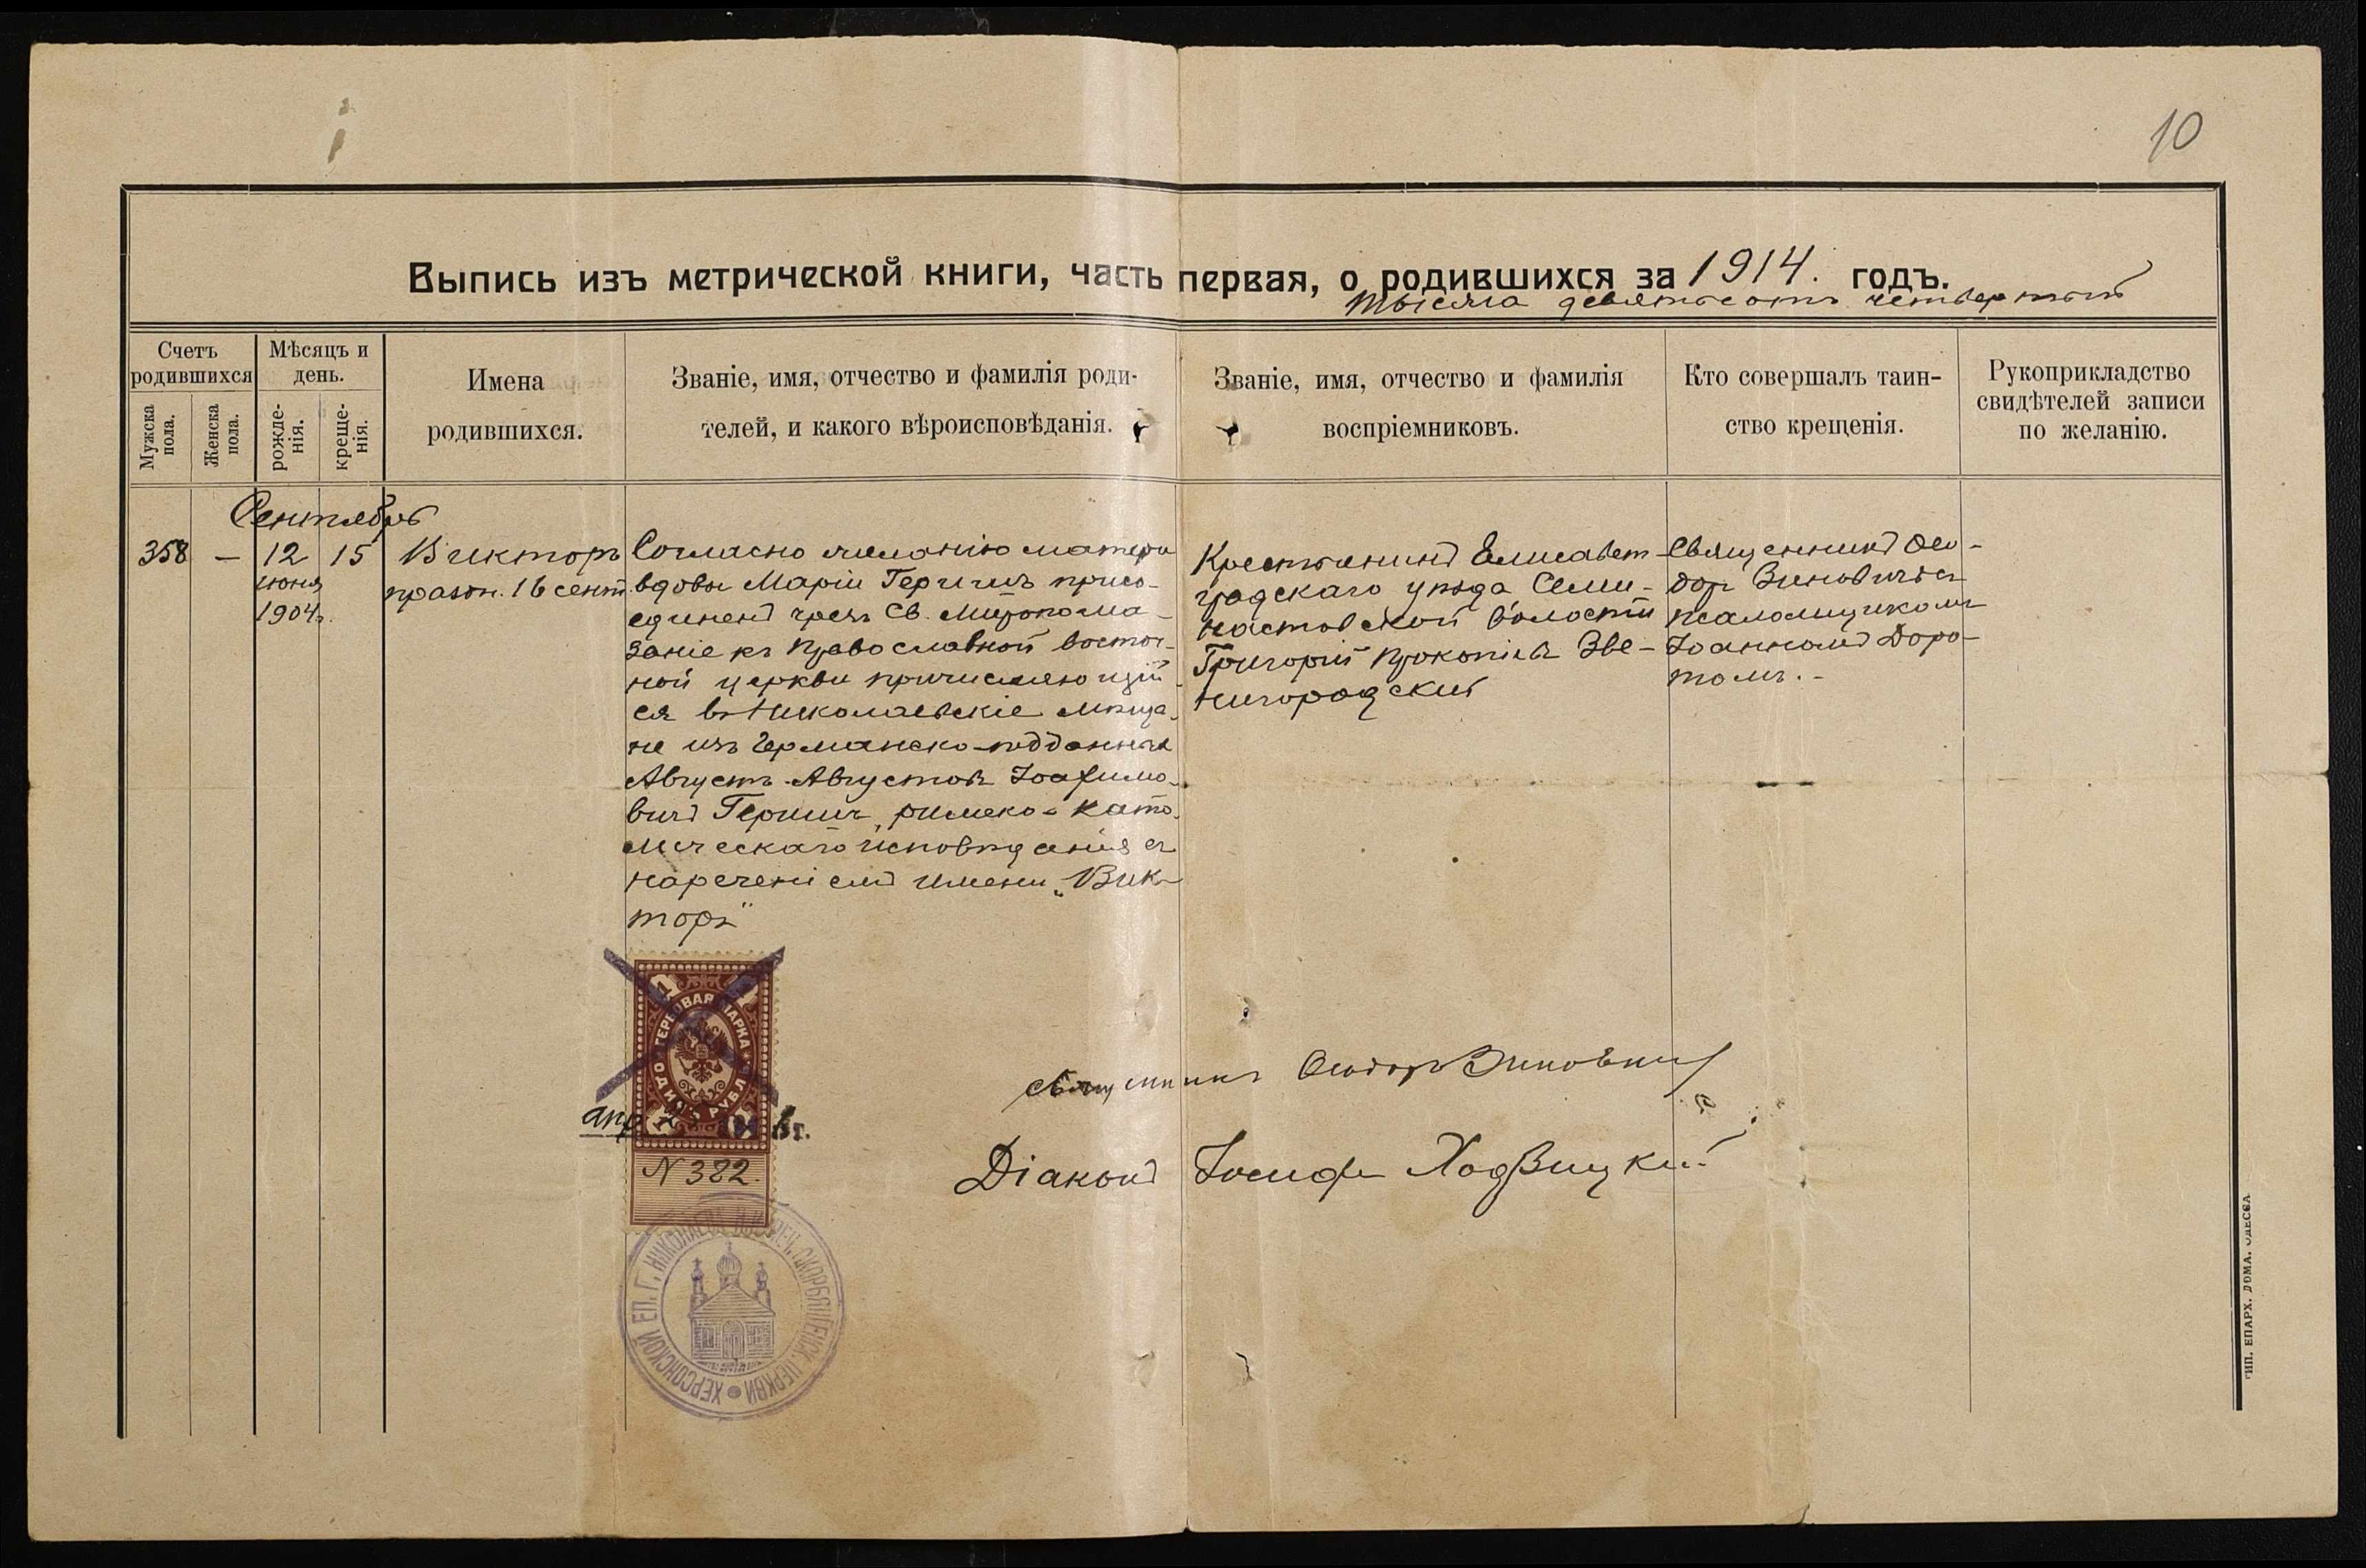 10
Выпись изъ метрической книги, часть первая, о родившихся за 1914. годъ.
тысяча девятьсотъ четвертый
Счетъ родившихся
Мѣсяцъ и день.
Мужска пола.
Женска пола.
рожде-нія.
креще-нія.
Имена
родившихся.
Званіе, имя, отчество и фамилія роди-
телей, и какого вѣроисповѣданія.
Званіе, имя, отчество и фамилія
воспріемниковъ.
Кто совершалъ таин-
ство крещенія.
Рукоприкладство
свидѣтелей записи
по желанію.
Сентябрь
358 — 12 15
июня
1904г.
Викторъ
празн. 16 сент.
Согласно желанію матери
вдовы Маріи Геричъ присо-
единенъ чрезъ Св. Мѵропома-
заніе къ православной восточ-
ной церкви причисляющій-
ся въ Николаевскіе мѣща-
не изъ Германско-подданныхъ
Августъ Августовъ
вичъ римско-като-
лическаго исповѣданія съ
нареченіемъ имени „Вик-
торъ"
Крестьянинъ Елисавет-
градскаго уѣзда Семи-
настовской волости
Григорій Прокопіевъ Зве-
нигородскій
Священникъ Ѳео-
доръ Зиновичъ съ
псаломщикомъ
Іоанномъ Доро-
томъ.-
ГЕРБОВАЯ МАРКА
ОДИНЪ РУБЛЬ
1
апр.
г.
N 382.
священникъ Ѳеодоръ Зиновичъ
Діаконъ Іосифъ Ходвицкій
ХЕРСОНСКОЙ ЕП. Г. НИКОЛАЕВА ЦЕРКВИ
ТИП. ЕПАРХ. ДОМА. ОДЕССА